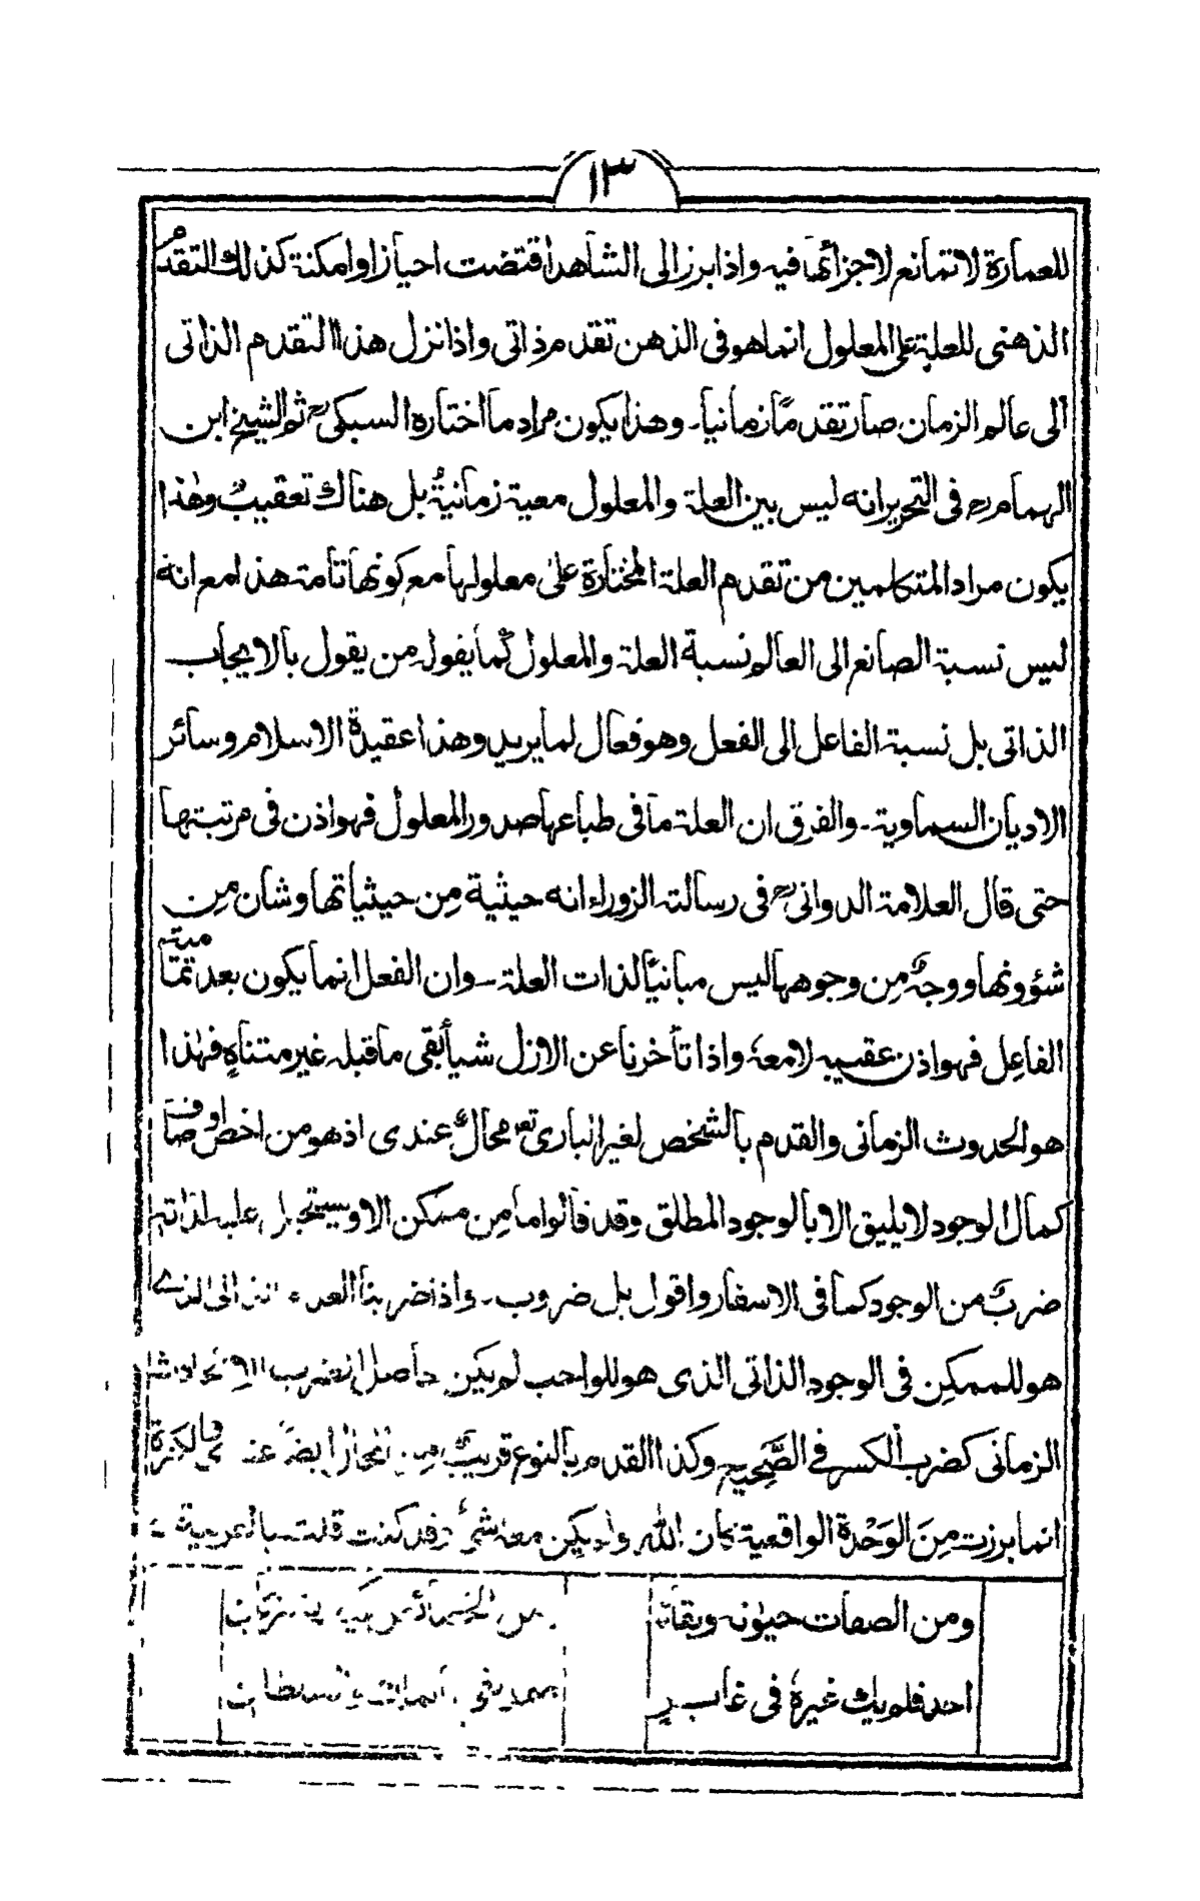 ١٣
للعمارة لا تمانع لاجزائها فيه واذا برز الى الشاهد اقتضت احيازا وامكنة كذلك التقدم
الذهنى للعلة على المعلول انما هو فى الذهن تقدم ذاتى واذا نزل هذا التقدم الذاتى
الى عالم الزمان صار تقدمًا زمانيا۔ وهذا يكون مراد ما اختاره السبكىؒ ثم الشيخ ابن
الهمامؒ فى التحرير انه ليس بين العلة والمعلول معية زمانيةٌ بل هناك تعقيبٌ وهٰذا
يكون مراد المتكلمين من تقدم العلة المختارة علىٰ معلولها مع كونها تامة هذا مع انه
ليس نسبة الصانع الى العالم نسبة العلة والمعلول كما يقوله من يقول بالايجاب
الذاتى بل نسبة الفاعل الى الفعل وهو فعال لما يريد وهذا عقيدة الاسلام وسائر
الاديان السماوية۔ والفرق ان العلة ما فى طباعها صدور المعلول فهو اذن فى مرتبتها
حتى قال العلامة الدوانىؒ فى رسالة الزوراء انه حيثية مِن حيثياتها وشان مِن
شؤونها ووجهٌ مِن وجوهها ليس مباينًا لذات العلة۔ وان الفعل انما يكون بعد تمامية
الفاعِل فهو اذن عقيبه لا معهٗ واذا تأخرنا عن الازل شيأ بقى ما قبله غير متناهٍ فهٰذا
هو الحدوث الزمانى والقدم بالشخص لغير البارى تعه محالٌ عندى اذ هو من اخص اوصاف
كمال الوجود لا يليق الا بالوجود المطلق وقد قالوا ما مِن ممكن الا ويستحيل عليه لذاته
ضربٌ من الوجود كما فى الاسفار واقول بل ضروب۔ واذا ضربنا العدم الذى
هو للممكِن فى الوجود الذاتى الذى هو للواجب لم يكن حاصل الضرب الا
الزمانى كضرب الكسر فى الصَّحِيح وكذا القدم بالنوع قريبٌ مِن المحال ايضًا الكثرة
انما برزت مِنَ الوَحْدة الواقعية كان الله ولم يكن معهٗ شئٌ وقد كنت قلت بالعربية
ومن الصفات حيوٰته وبقاءه
احد فلم يك غيرهٗ فى غاب